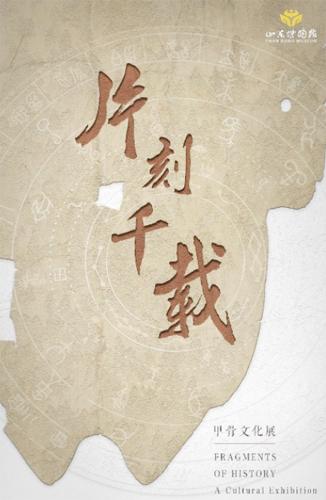 山东博物馆
SHANDONG MUSEUM
片刻千载
甲骨文化展
FRAGMENTS
OF HISTORY
A Cultural Exhibition